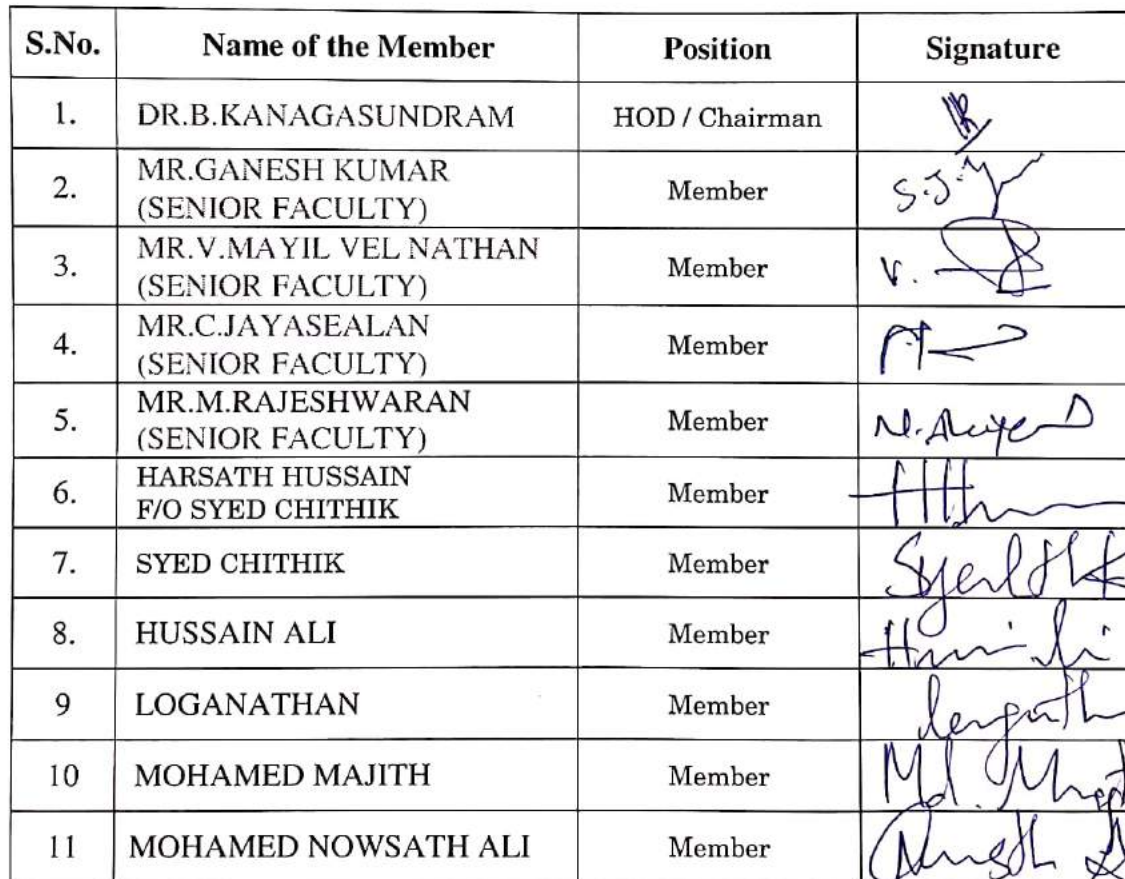 S.No. Name of the Member Position Signature
1. DR.B.KANAGASUNDRAM HOD / Chairman
2. MR.GANESH KUMAR
(SENIOR FACULTY) Member S.J.
3. MR.V.MAYIL VEL NATHAN
(SENIOR FACULTY) Member V.
4. MR.C.JAYASEALAN
(SENIOR FACULTY) Member
5. MR.M.RAJESHWARAN
(SENIOR FACULTY) Member
6. HARSATH HUSSAIN
F/O SYED CHITHIK Member
7. SYED CHITHIK Member
8. HUSSAIN ALI Member
9 LOGANATHAN Member
10 MOHAMED MAJITH Member Md.
11 MOHAMED NOWSATH ALI Member